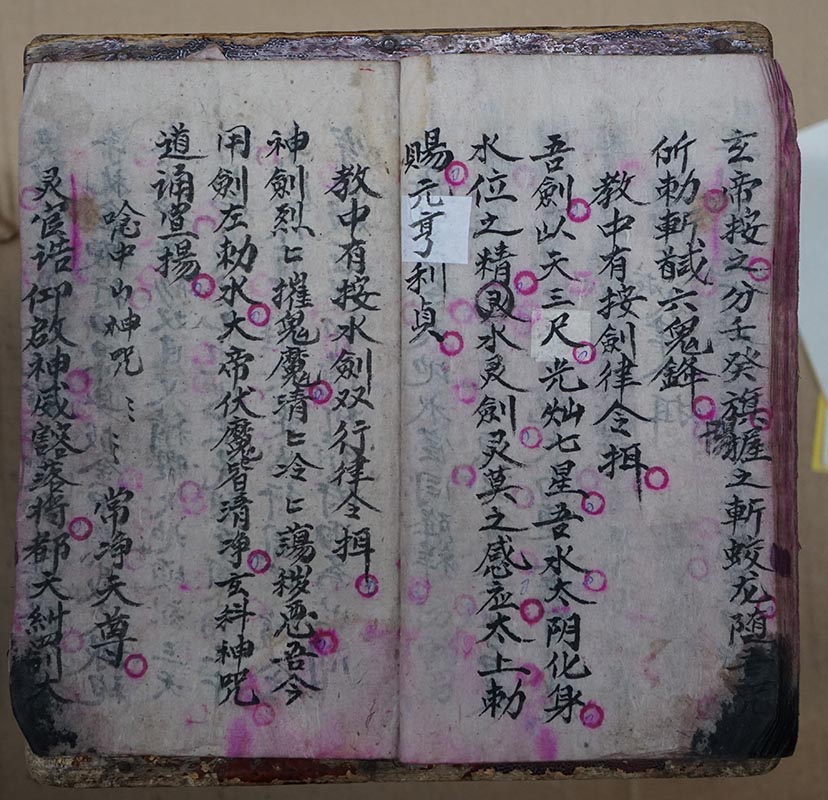 玄帝按之分壬癸旗握之斬蛟龙随
揚
所勅斬馘六鬼鋒
教中有按劍律令
吾劍以天三尺光灿七星吾水太阴化身
水位之精灵水灵劍灵莫之感应太上勅
賜元亨利貞
教中有按水劍双行律令
神劍烈匕摧鬼魔清匕冷匕蕩秽恶吾今
用劍左勅水大帝伏魔皆清净玄科神咒
道诵宣揚
唸中山神咒〻〻 常净天尊
灵官诰仰啟神威豁落將都天糾